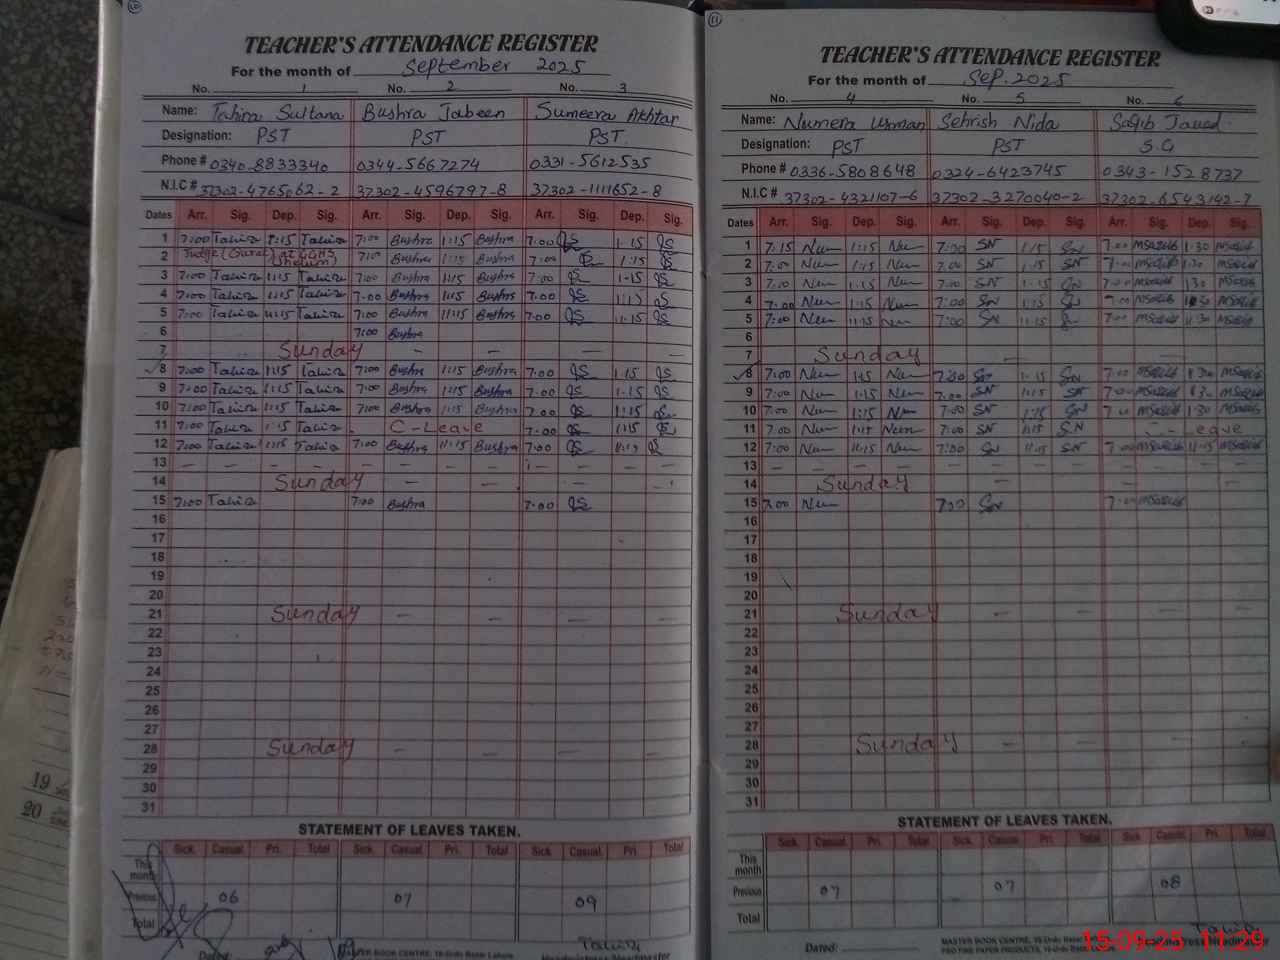 10
TEACHER'S ATTENDANCE REGISTER
For the month of September 2025
No. 1 No. 2 No. 3
Name: Tahira Sultana Bushra Jabeen Sumeera Akhtar
Designation: PST PST PST
Phone # 0340-8833340 0344-5667274 0331-5612535
N.I.C # 37302-4765062-2 37302-4596797-8 37302-1111652-8
Dates Arr. Sig. Dep. Sig. Arr. Sig. Dep. Sig. Arr. Sig. Dep. Sig.
1 7:00 Tahira 1:15 Tahira 7:00 Bushra 1:15 Bushra 7:00 1:15
2 Judge at GGHS 7:00 Bushra 1:15 Bushra 7:00 1:15
3 7:00 Tahira 1:15 Tahira 7:00 Bushra 1:15 Bushra 7:00 1:15
4 7:00 Tahira 1:15 Tahira 7:00 Bushra 1:15 Bushra 7:00 1:15
5 7:00 Tahira 11:15 Tahira 7:00 Bushra 11:15 Bushra 7:00 11:15
6 7:00 Bushra
7 Sunday — — — —
8 7:00 Tahira 1:15 Tahira 7:00 Bushra 1:15 Bushra 7:00 1:15
9 7:00 Tahira 1:15 Tahira 7:00 Bushra 1:15 Bushra 7:00 1:15
10 7:00 Tahira 1:15 Tahira 7:00 Bushra 1:15 Bushra 7:00 1:15
11 7:00 Tahira 1:15 Tahira C-Leave 7:00 1:15
12 7:00 Tahira 11:15 Tahira 7:00 Bushra 11:15 Bushra 7:00 11:15
13 — — — — — — — — — — —
14 Sunday — — —
15 7:00 Tahira 7:00 Bushra 7:00
16
17
18
19
20
21 Sunday — — — —
22
23
24
25
26
27
28 Sunday — — — —
29
30
31
STATEMENT OF LEAVES TAKEN.
Sick Casual Pri. Total Sick Casual Pri. Total Sick Casual Pri. Total
This month
Previous 06 07 09
Total
Tahira
11
TEACHER'S ATTENDANCE REGISTER
For the month of Sep. 2025
No. 4 No. 5 No. 6
Name: Numera Usman Sehrish Nida Saqib Javed
Designation: PST PST S.G
Phone # 0336-5808648 0324-6423745 0343-1528737
N.I.C # 37302-4321107-6 37302-3270040-2 37302-6543142-7
Dates Arr. Sig. Dep. Sig. Arr. Sig. Dep. Sig. Arr. Sig. Dep. Sig.
1 7:15 Num 1:15 Num 7:00 SN 1:15 SN 7:00 MSaqib 1:30 MSaqib
2 7:00 Num 1:15 Num 7:00 SN 1:15 SN 7:00 MSaqib 1:30 MSaqib
3 7:00 Num 1:15 Num 7:00 SN 1:15 SN 7:00 MSaqib 1:30 MSaqib
4 7:00 Num 1:15 Num 7:00 SN 1:15 SN 7:00 MSaqib 1:30 MSaqib
5 7:00 Num 11:15 Num 7:00 SN 11:15 7:00 MSaqib 11:30 MSaqib
6
7 Sunday — — —
8 7:00 Num 1:15 Num 7:00 SN 1:15 SN 7:00 MSaqib 1:30 MSaqib
9 7:00 Num 1:15 Num 7:00 SN 1:15 SN 7:00 MSaqib 1:30 MSaqib
10 7:00 Num 1:15 Num 7:00 SN 1:15 SN 7:00 MSaqib 1:30 MSaqib
11 7:00 Num 1:15 Num 7:00 SN 1:15 SN C-Leave
12 7:00 Num 11:15 Num 7:00 SN 11:15 SN 7:00 MSaqib 11:15 MSaqib
13 — — — — — — — — — — —
14 Sunday — — — —
15 7:00 Num 7:00 SN 7:00 MSaqib
16
17
18
19
20
21 Sunday — — — —
22
23
24
25
26
27
28 Sunday — — — —
29
30
31
STATEMENT OF LEAVES TAKEN.
Sick Casual Pri. Total Sick Casual Pri. Total Sick Casual Pri. Total
This month
Previous 07 07 08
Total
Dated:
MASTER BOOK CENTRE
15-09-25 11:29
19
20